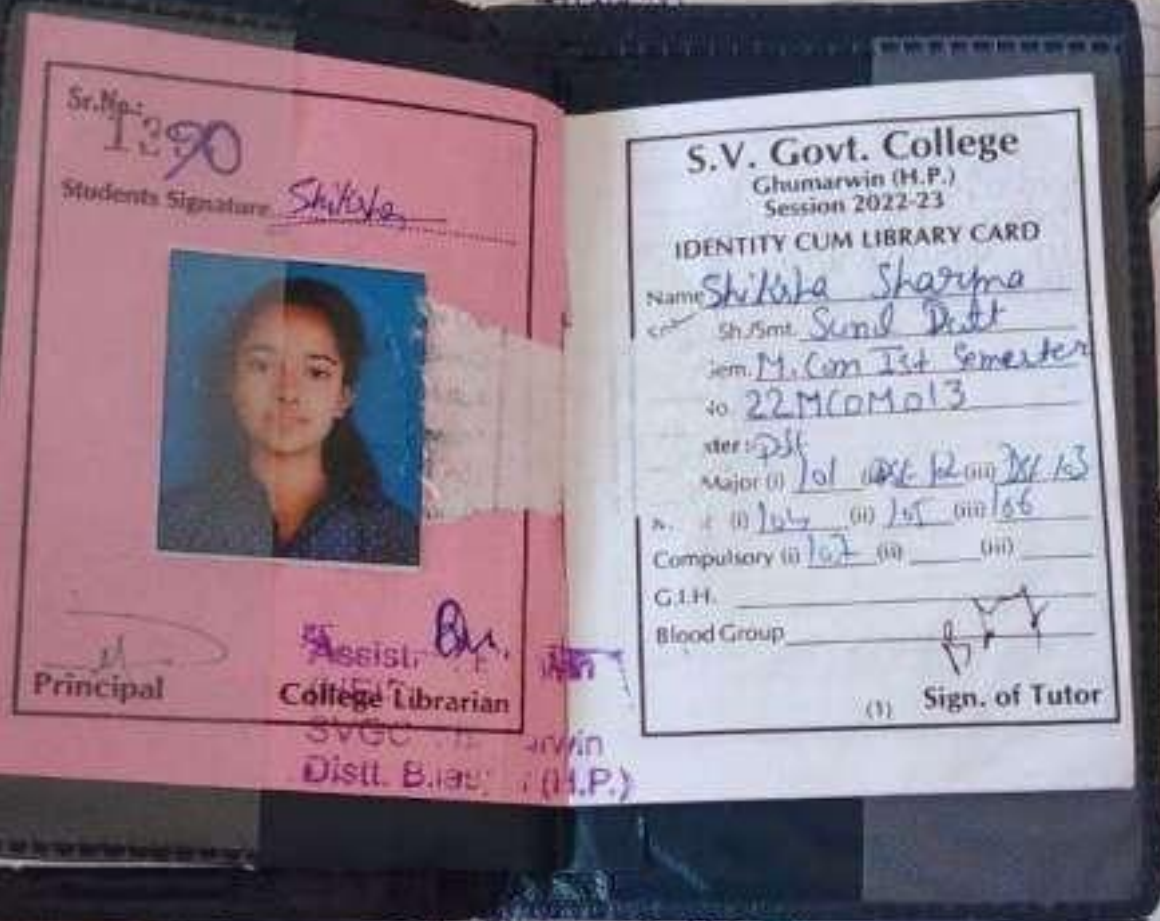 Sr.No.:
90
Students Signature Shiksha
Principal
Assist
College Librarian
SVGC
Distt. (H.P.)
S.V. Govt. College
Ghumarwin (H.P.)
Session 2022-23
IDENTITY CUM LIBRARY CARD
Name Shiksha Sharma
Sh./Smt. Sunil Dutt
M.Com Ist Semester
22MCOM013
Major (i) 101 (iii)
(i) (ii) 105 (iii) 106
Compulsory (i) 107 (ii) (iii)
G.I.H.
Blood Group
(1) Sign. of Tutor